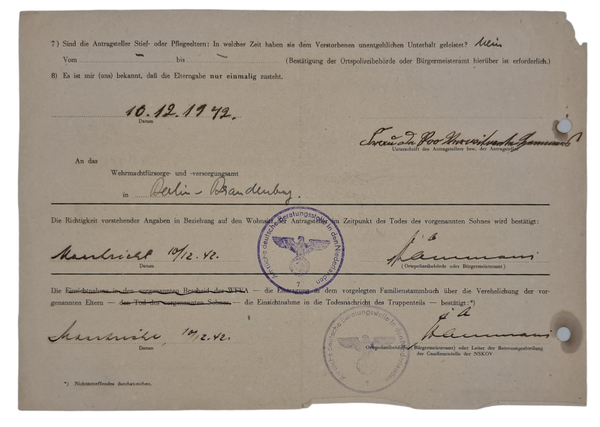 7) Sind die Antragsteller Stief- oder Pflegeeltern: In welcher Zeit haben sie dem Verstorbenen unentgeltlichen Unterhalt geleistet? Nein
Vom — bis — (Bestätigung der Ortspolizeibehörde oder Bürgermeisteramt hierüber ist erforderlich.)
8) Es ist mir (uns) bekannt, daß die Elterngabe nur einmalig zusteht.
10.12.1942.
Datum
Unterschrift des Antragstellers bzw. der Antragsteller
An das
Wehrmachtfürsorge- und -versorgungsamt
in Berlin-Brandenburg.
Die Richtigkeit vorstehender Angaben in Beziehung auf den Wohnsitz der Antragsteller im Zeitpunkt des Todes des vorgenannten Sohnes wird bestätigt:
10/12.42.
Datum
(Ortspolizeibehörde oder Bürgermeisteramt)
deutsche Beratungsstelle in den Niederlanden
7
Die Einsichtnahme in den vorgenannten Bescheid der WFVA — die Eintragung in dem vorgelegten Familienstammbuch über die Verehelichung der vor-
genannten Eltern — den Tod des vorgenannten Sohnes — die Einsichtnahme in die Todesnachricht des Truppenteils — bestätigt:*)
10/12.42.
Datum
Ortspolizeibehörde (Bürgermeisteramt) oder Leiter der Betreuungsabteilung
der Gaudienststelle der NSKOV
7
*) Nichtzutreffendes durchstreichen.